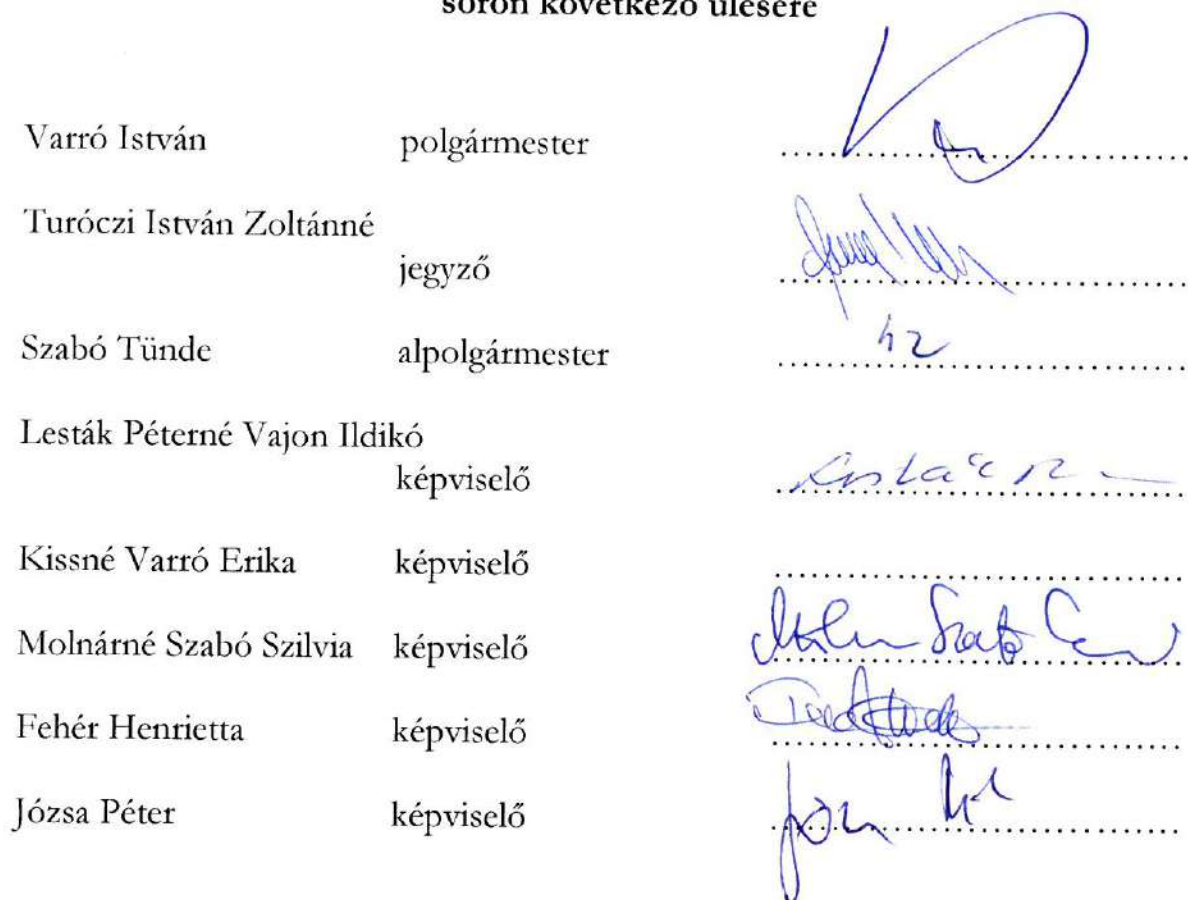 soron következő ülésére
Varró István polgármester
Turóczi István Zoltánné
jegyző
Szabó Tünde alpolgármester
Lesták Péterné Vajon Ildikó
képviselő
Kissné Varró Erika képviselő
Molnárné Szabó Szilvia képviselő
Fehér Henrietta képviselő
Józsa Péter képviselő